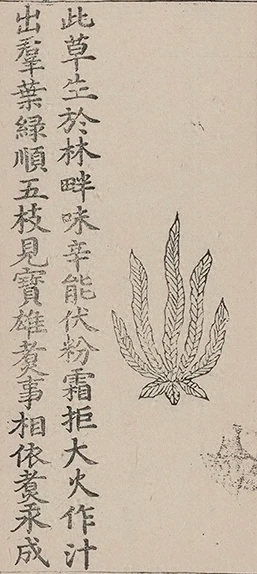 此草生於林畔味辛能伏粉霜拒大火作汁
出羣葉緑順五枝見寶雄煑事相依煑汞成